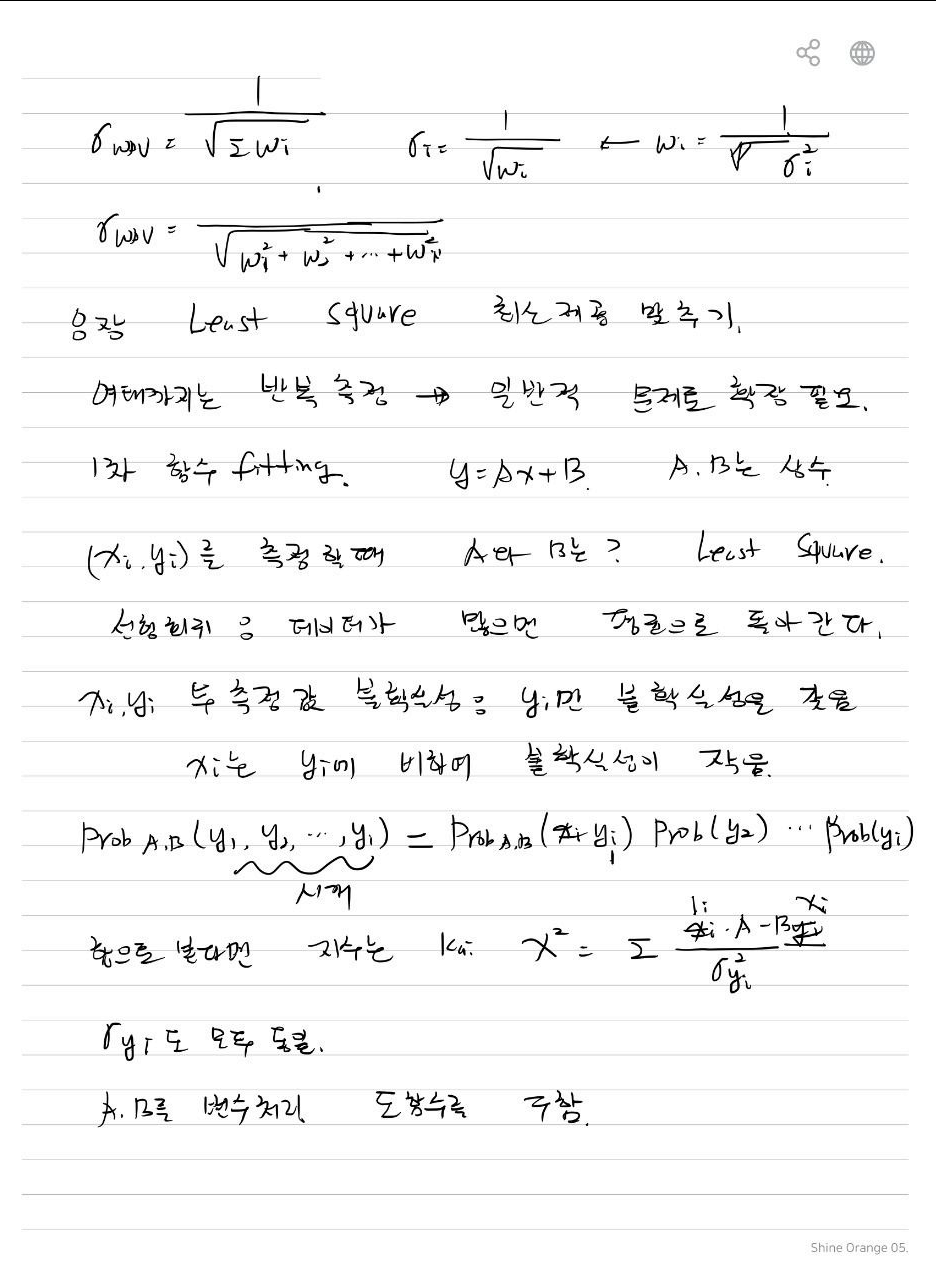 σwav = 1/√Σwi   σi = 1/√wi ← wi = 1/σi²
σwav = 1/√(w1² + w2² + ... + wi²)
8장 Least Square 최소제곱 맞추기.
여태까지는 반복 측정 → 일반적 문제로 확장 필요.
1차 함수 fitting. y=Ax+B. A.B는 상수.
(xi.yi)를 측정할때 A와 B는? Least Square.
선형회귀 : 데이터가 많으면 평균으로 돌아간다.
xi,yi 두 측정값 불확실성 : yi만 불확실성을 갖음
xi는 yi에 비하여 불확실성이 작음.
Prob A,B (y1, y2, ..., yi) = Prob A,B (y1) Prob(y2) ... Prob(yi)
본다면 지수는 kai χ² = Σ yi·A-Bxi / σyi²
σyi도 모두 동일.
A.B를 변수처리 도함수를 구함.
Shine Orange 05.